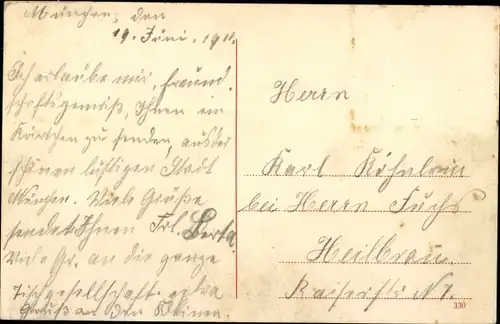 München, den
19. Juni. 1911.
Ich erlaube mir, freund
schaftsgemäß, Ihnen ein
Kärtchen zu senden, aus der
schönen lustigen Stadt
München. Viele Grüße
sendet Ihnen Frl. Berta.
Viele Gr. an die ganze
Tischgesellschaft. extra
Gruß an den Kleinen.
Herrn
Karl
bei Herrn Fuchs
Heilbronn.
Kaiserstr. N
330